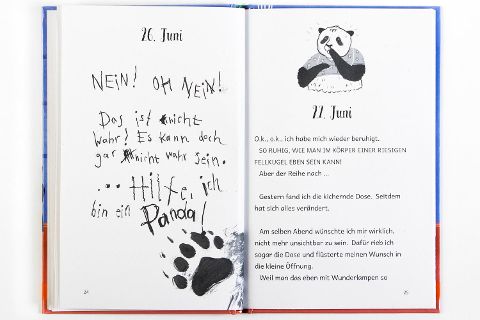 20. Juni
NEIN! OH NEIN!
Das ist nicht
wahr! Es kann doch
gar nicht wahr sein.
... Hilfe, ich
bin ein Panda!
24
22. Juni
O.k., o.k., ich habe mich wieder beruhigt.
SO RUHIG, WIE MAN IM KÖRPER EINER RIESIGEN
FELLKUGEL EBEN SEIN KANN!
Aber der Reihe nach ...
Gestern fand ich die kichernde Dose. Seitdem
hat sich alles verändert.
Am selben Abend wünschte ich mir wirklich,
nicht mehr unsichtbar zu sein. Dafür rieb ich
sogar die Dose und flüsterte meinen Wunsch in
die kleine Öffnung.
Weil man das eben mit Wunderlampen so
25